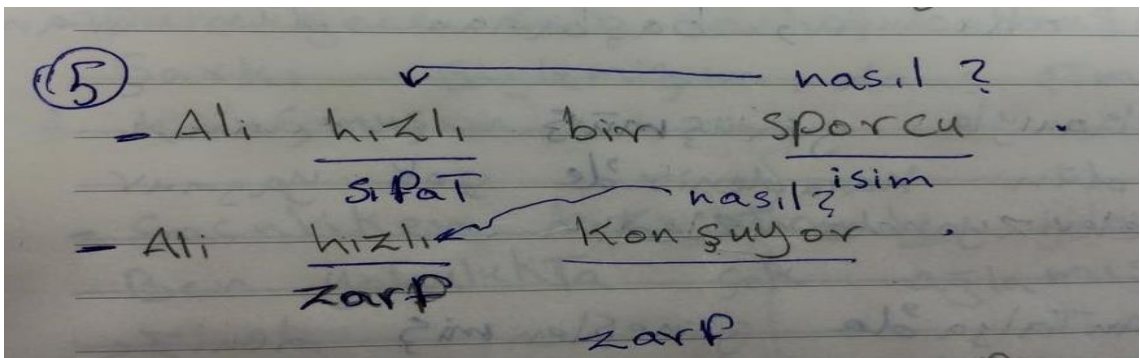 5 nasıl ?
- Ali hızlı bir sporcu .
sıfat isim
nasıl?
- Ali hızlı konşuyor .
zarf
zarf